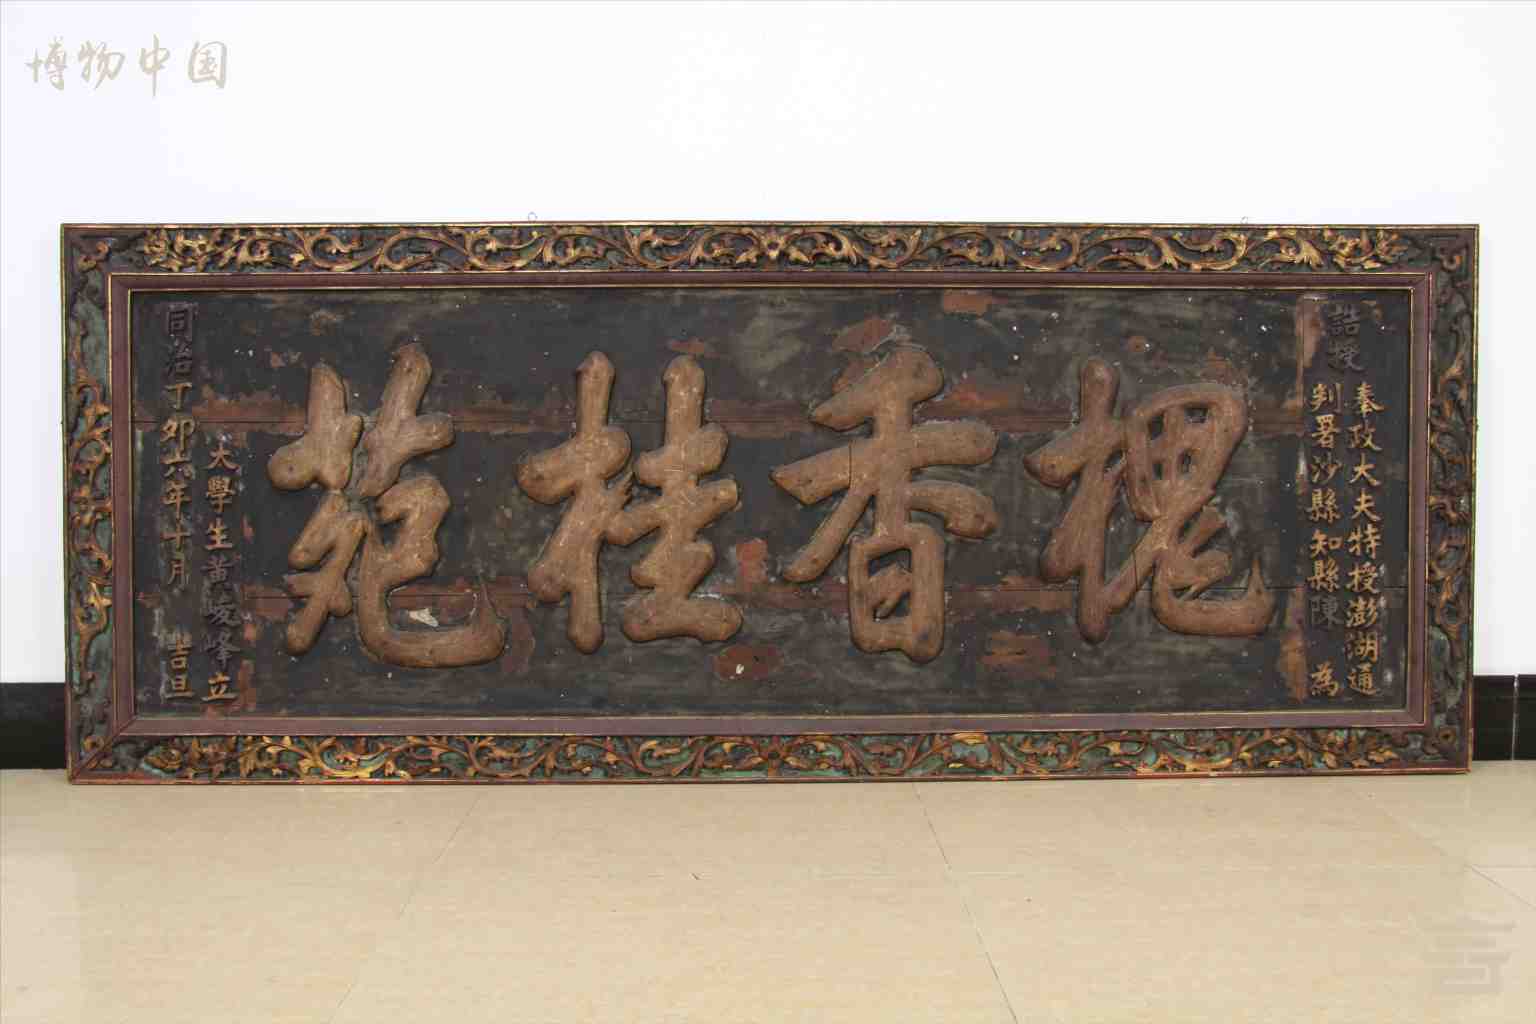 博物中国
誥授
奉政大夫特授澎湖通
判署沙縣知縣陳 為
槐香桂苑
大學生黃峻峰立
同治丁卯六年十月 吉旦